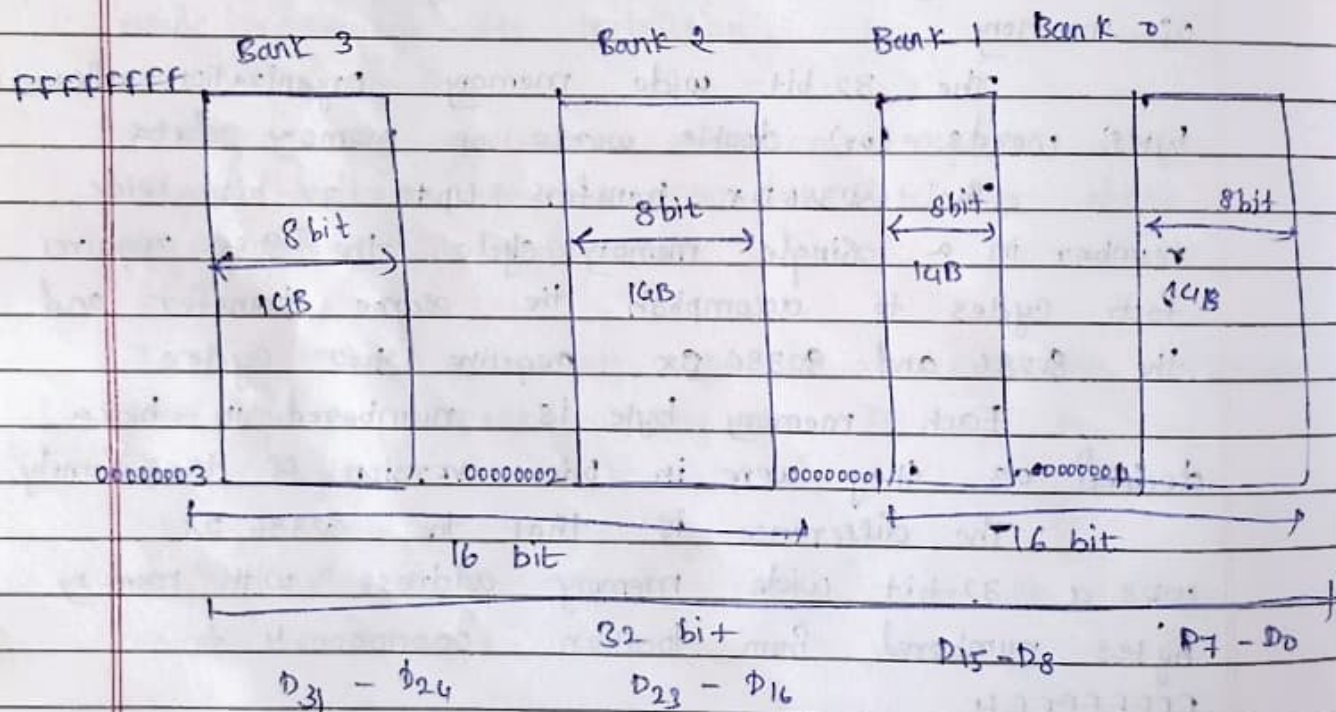 Bank 3 Bank 2 Bank 1 Bank 0
FFFFFFFF
8bit 8bit 8bit 8bit
1GB 1GB 1GB 1GB
00000003 00000002 00000001
16 bit 16 bit
32 bit
D31 - D24 D23 - D16 D15-D8 D7 - D0